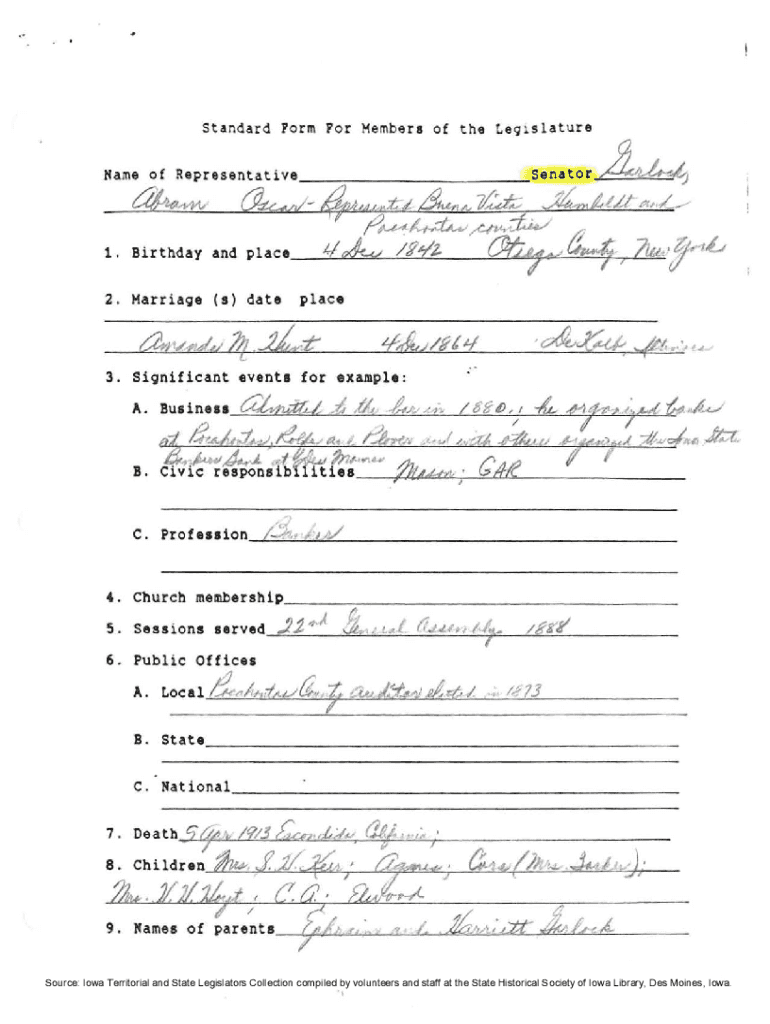 Standard Form For Members of the Legislature
Name of Representative Senator Garlock,
Abram Oscar - Represented Buena Vista Humboldt and
Pocahontas counties
1. Birthday and place 4 Dec 1842 Otsego County, New York
2. Marriage (s) date place
Amanda M. Hunt 4 Dec 1864 DeKalb, Illinois
3. Significant events for example:
A. Business Admitted to the bar in 1880.; he organized banks
at Pocahontas, Rolfe and Plover and with others organized the Iowa State
Bankers Bank at Des Moines
B. Civic responsibilities Mason; GAR
C. Profession Banker
4. Church membership
5. Sessions served 22nd General Assembly 1888
6. Public Offices
A. Local Pocahontas County auditor elected in 1873
B. State
C. National
7. Death 5 Apr 1913 Escondido, California;
8. Children Mrs. S. H. Kerr; Agnes; Cora (Mrs. );
Mrs. Hoyt; C.A.; Elwood
9. Names of parents Ephraim and Harriett Garlock
Source: Iowa Territorial and State Legislators Collection compiled by volunteers and staff at the State Historical Society of Iowa Library, Des Moines, Iowa.